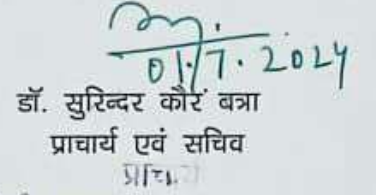 01.7.2024
डॉ. सुरिन्दर कौर बत्रा
प्राचार्य एवं सचिव